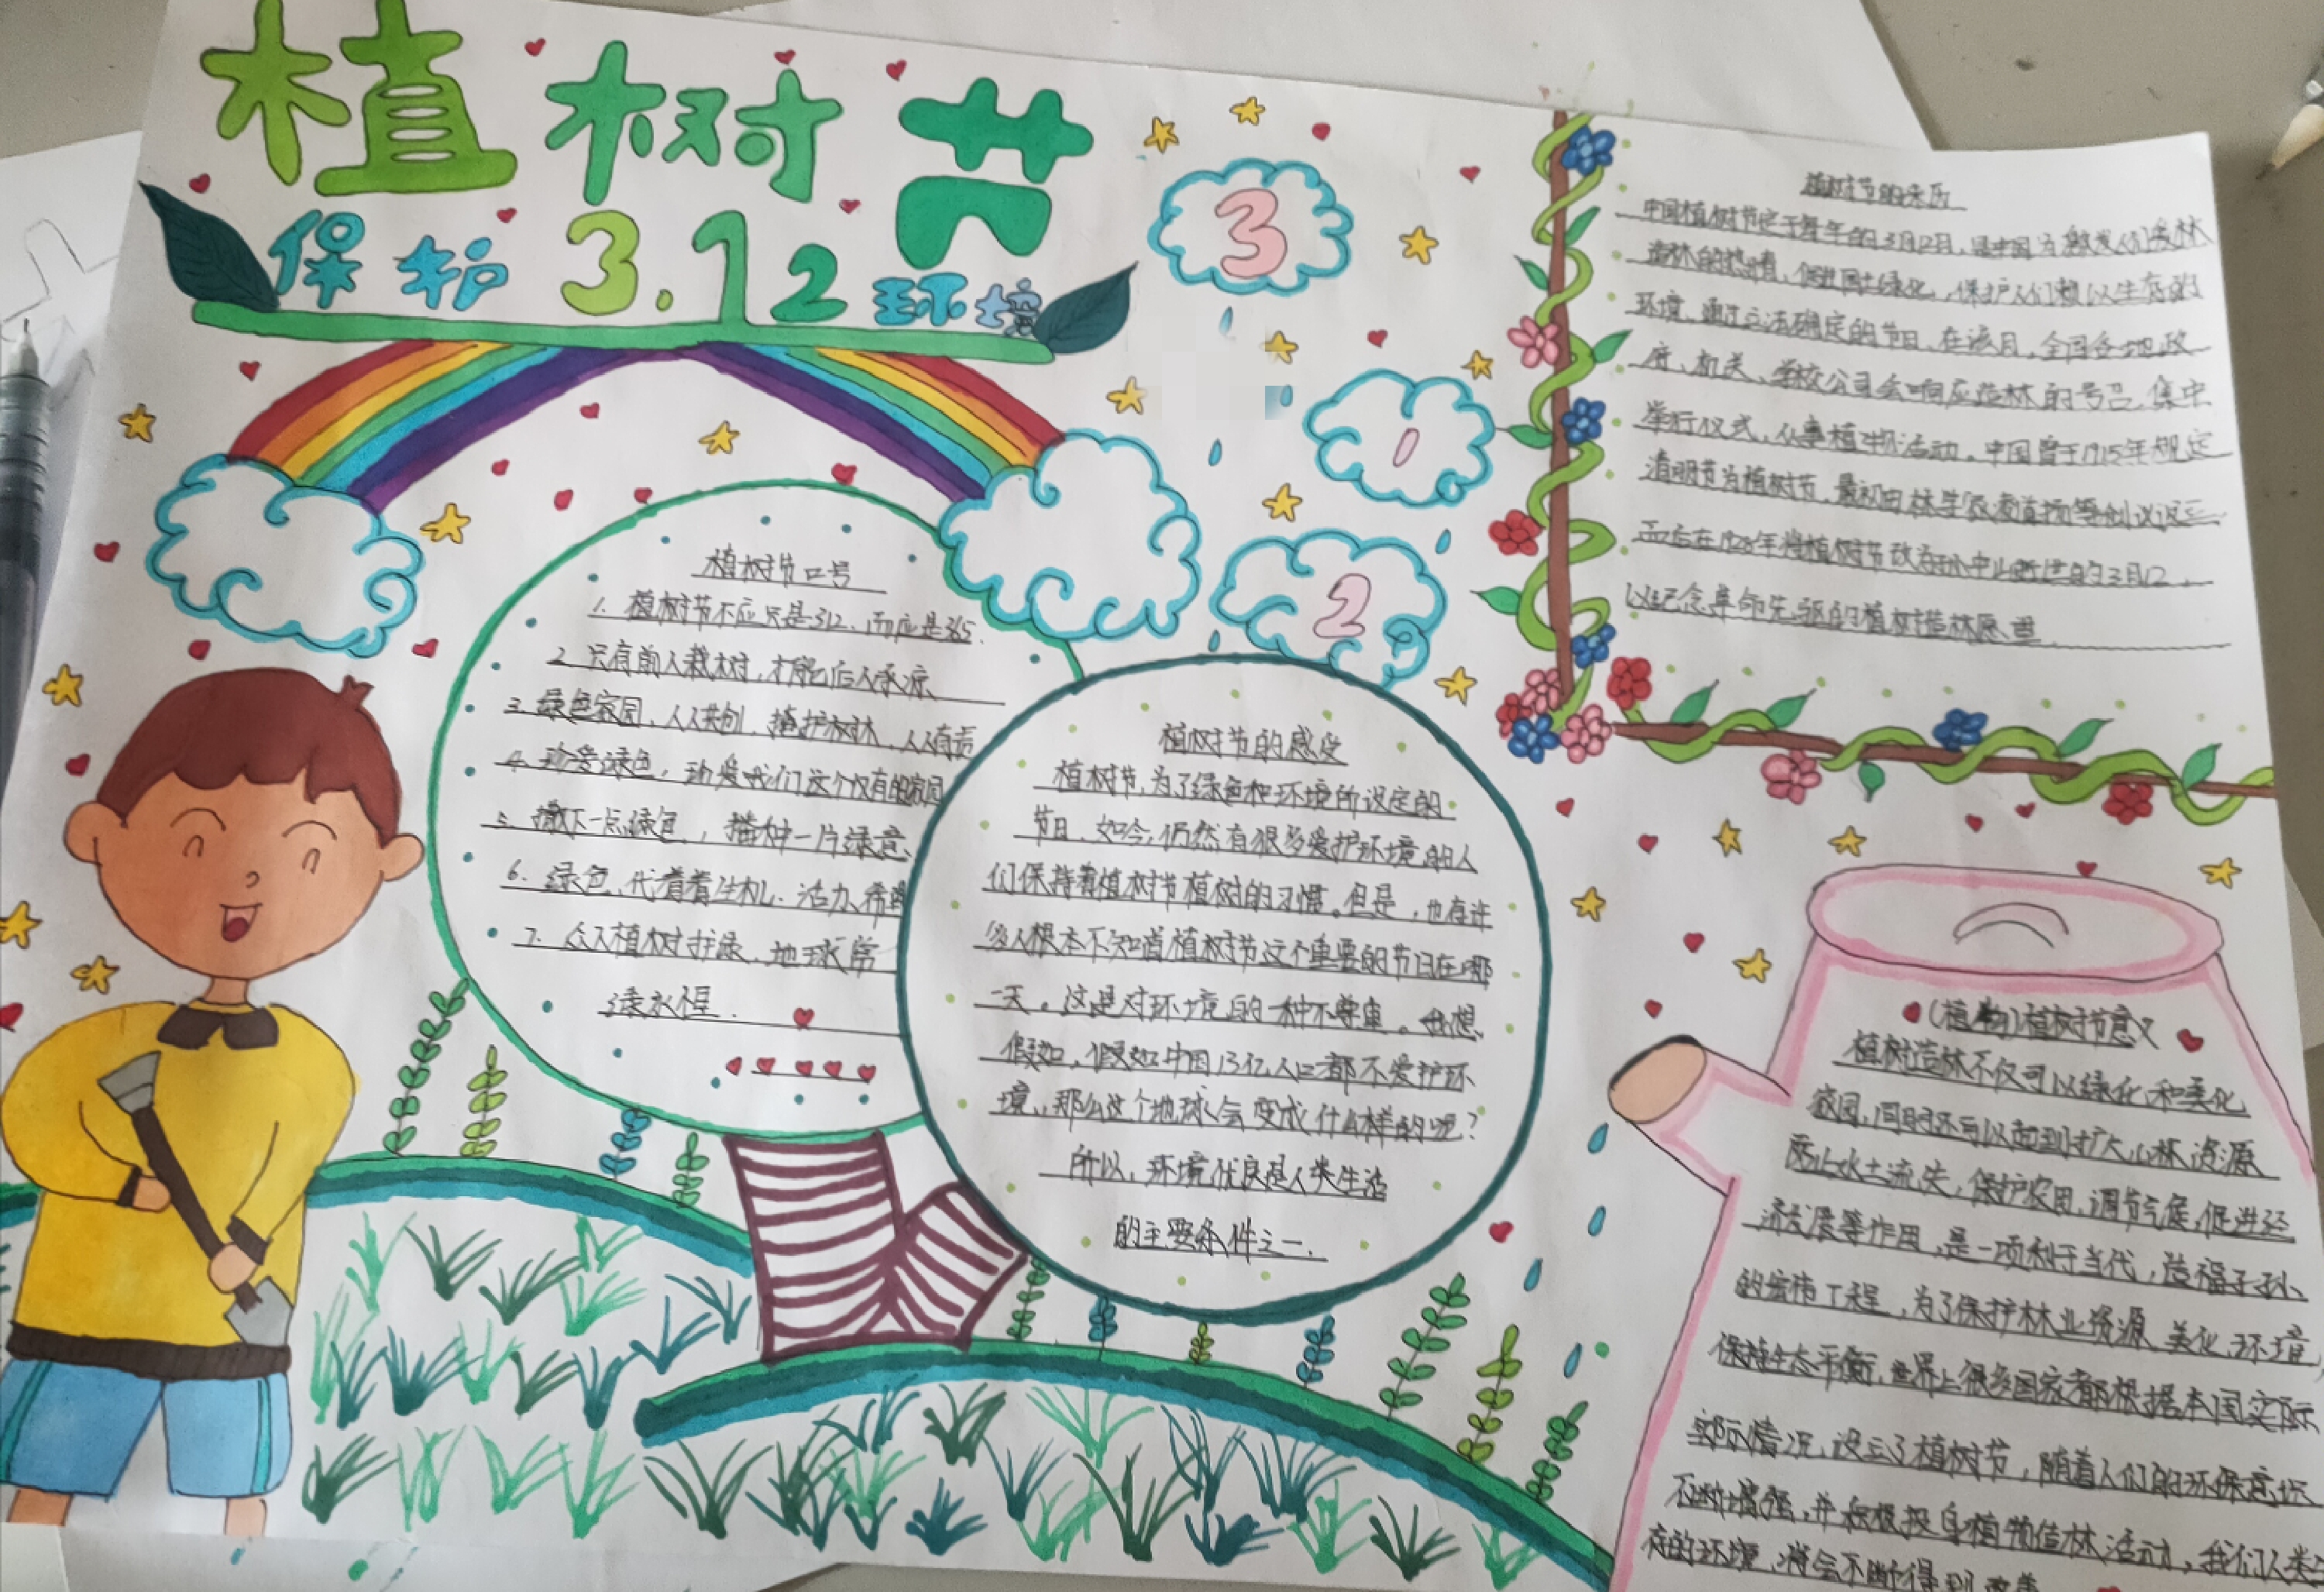 植树节
保护 3.12 环境
3
1
2
植树节的来历
中国植树节定于每年的3月12日,是中国为激发人们爱林
造林的热情、促进国土绿化,保护人们赖以生存的
环境,通过立法确定的节日。在该日,全国各地政
府、机关、学校公司会响应造林的号召,集中
举行仪式,从事植树活动。中国曾于1915年规定
清明节为植树节,最初由林学家凌道扬等倡议设立
而后在1928年将植树节改为孙中山逝世的3月12,
以纪念革命先驱的植树造林愿望
植树节口号
1. 植树节不应只是312、而应是365.
2 只有前人栽树,才能后人乘凉
3. 绿色家园、人人共创,植护树木,人人有责
4. 珍爱绿色,珍爱我们这个仅有的家园
5. 撒下一点绿色,播种一片绿意、
6. 绿色,代着着生机、活力、希望
7. 众人植树护绿、地球常
绿永恒.
植树节的感受
植树节,为了绿色和环境所设定的
节日、如今,仍然有很多爱护环境的人
们保持着植树节植树的习惯。但是,也有许
多人根本不知道植树节这个重要的节日在哪
一天。这是对环境的一种不尊重。我想
假如,假如中国13亿人口都不爱护环
境,那么这个地球会变成什么样的呢?
所以,环境优良是人类生活
的主要条件之一.
(植物)植树节意义
植树造林不仅可以绿化和美化
家园,同时还可以起到扩大山林资源
防止水土流失,保护农田,调节气候,促进经
济发展等作用,是一项利于当代,造福子孙、
的宏伟工程,为了保护林业资源 美化环境,
保持生态平衡,世界上很多国家都根据本国实际
实际情况,设立了植树节,随着人们的环保意识
不断增强,并积极投身植物造林活动,我们人类
存的环境,将会不断得到改善